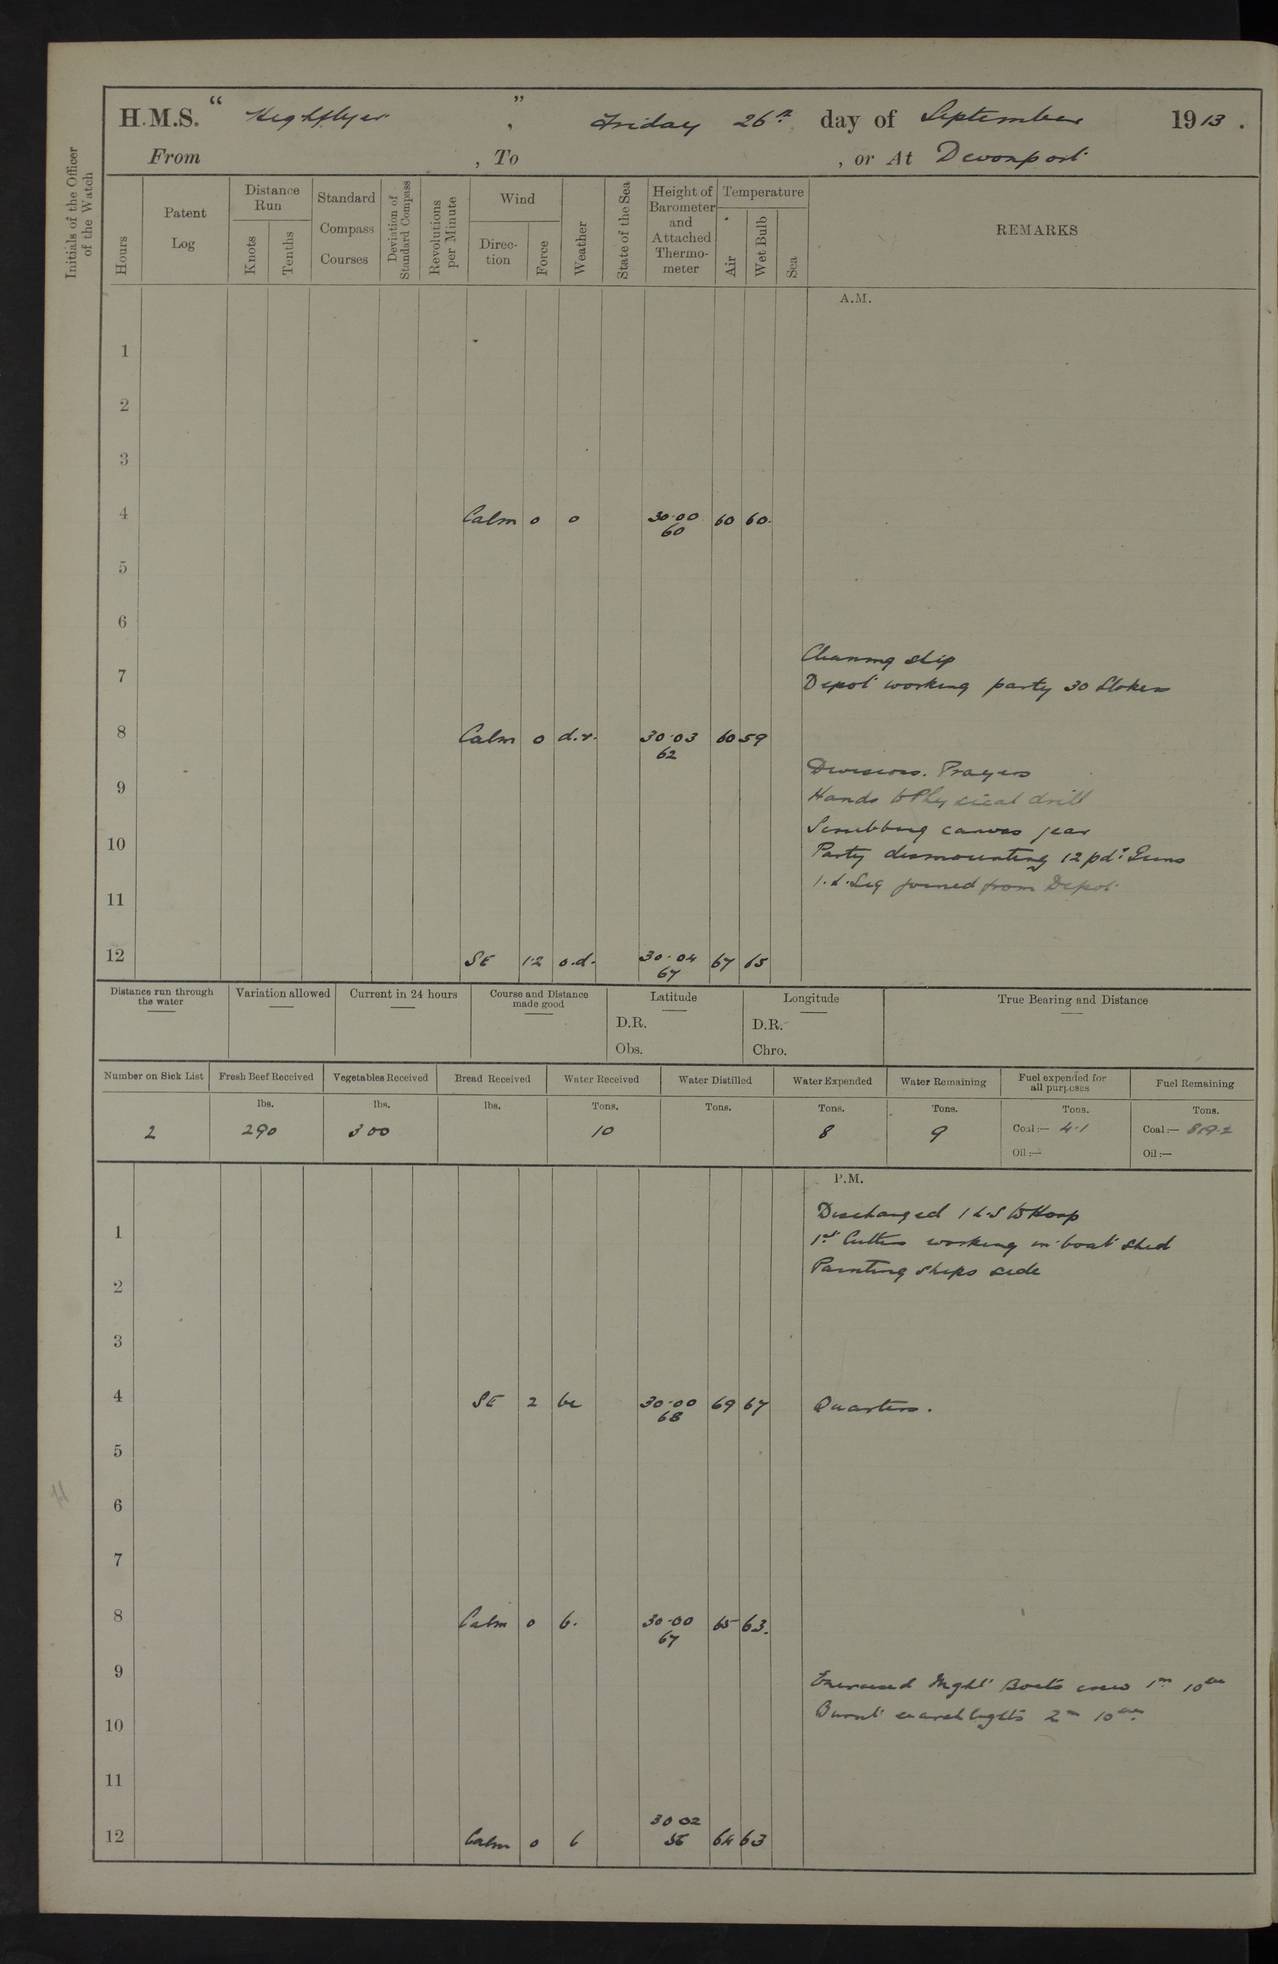 H.M.S. “ Highflyer ” , Friday 26th day of September 1913 .
From , To , or At Devonport
Initials of the Officer of the Watch
Hours
Patent Log
Distance Run
Knots
Tenths
Standard Compass Courses
Deviation of Standard Compass
Revolutions per Minute
Wind
Direc-tion
Force
Weather
State of the Sea
Height of Barometer and Attached Thermo-meter
Temperature
Air
Wet Bulb
Sea
REMARKS
A.M.
1
2
3
4 Calm 0 o 30.00 60 60 60.
5
6
Cleaning ship
7
Depot working party 30 Stokers
8 Calm 0 d.r. 30.03 62 60 59
Divisions. Prayers
9
Hands to Physical drill
Scrubbing canvas gear
10
Party dismounting 12 pdr Guns
1.L.Sig joined from Depot
11
12 SE 1.2 o.d. 30.04 67 67 65
Distance run through the water
Variation allowed
Current in 24 hours
Course and Distance made good
Latitude
D.R.
Obs.
Longitude
D.R.
Chro.
True Bearing and Distance
Number on Sick List
Fresh Beef Received
Vegetables Received
Bread Received
Water Received
Water Distilled
Water Expended
Water Remaining
Fuel expended for all purposes
Fuel Remaining
lbs. lbs. lbs. Tons. Tons. Tons. Tons. Tons. Tons.
2 290 300 10 8 9 Coal:— 4.1 Coal:— 819.2
Oil:— Oil:—
P.M.
Discharged 1 L.S to Hosp
1
1st Cutter working in boat shed
Painting ships side
2
3
4 SE 2 bc 30.00 68 69 67 Quarters.
5
6
7
8 Calm 0 b. 30.00 67 65 63.
9
Exercised Night Boats crew 1m 10sec
Burnt searchlights 2m 10sec
10
11
12 Calm 0 b 30 02 56 64 63